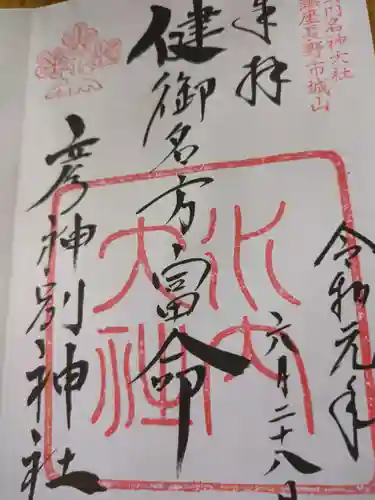 名神大社
鎮座長野市城山
奉拝
令和元年
六月二十八日
健御名方富命
彦神別神社
水内
大社